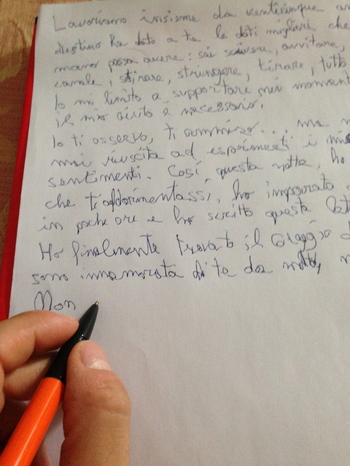 Lavoriamo insieme da venticinque an
destino ha dato a te le doti migliori che
mano possa avere: sai scrivere, avvitare,
stirare, stringere, tirare, tutto
Io mi limito a supportare nei moment
il mio aiuto è necessario.
Io ti osservo, ti ammiro... ma n
mai riuscita ad esprimerti i mi
sentimenti. Così questa notte, ho
che ti addormentassi, ho imparato
in poche ore e ho scritto questa let
Ho finalmente trovato il coraggio d
sono innamorata di te da molto,
Non